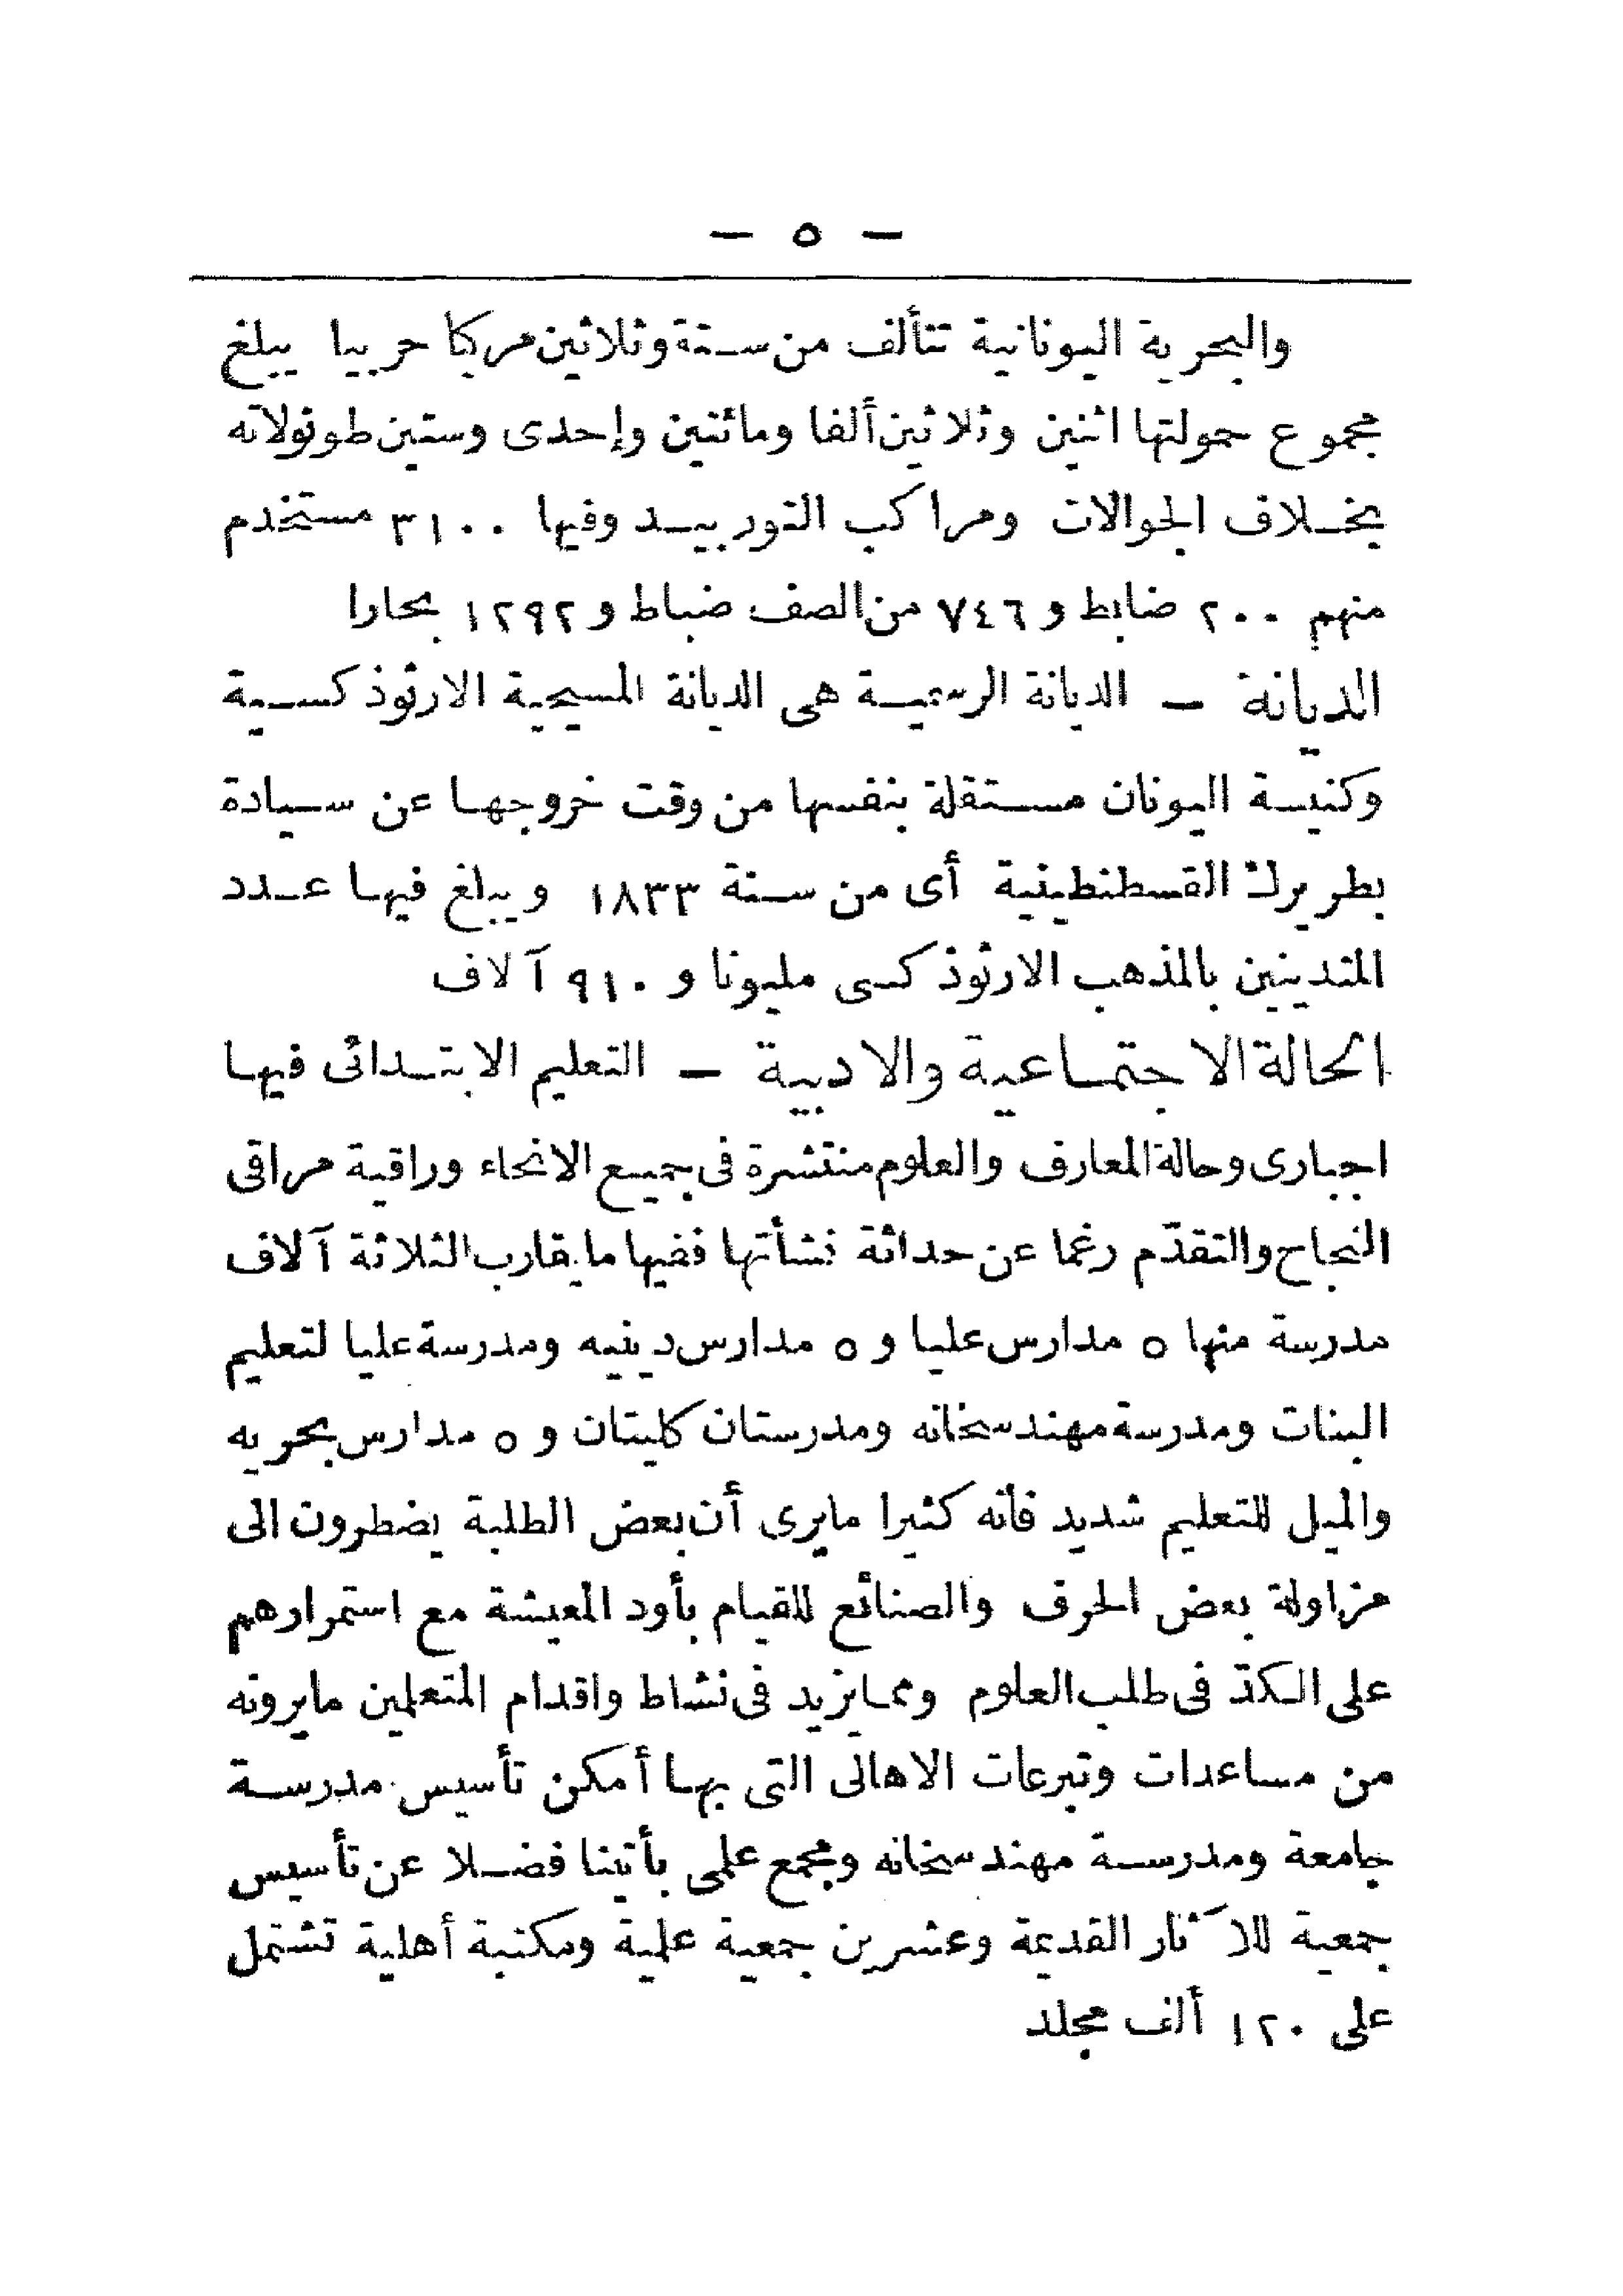 — ٥ —
والبحرية اليونانية تتألف من ستة وثلاثين مركبا حربيا يبلغ
مجموع حمولتها اثنين وثلاثين ألفا ومائتين وإحدى وستين طونولاته
بخلاف الجوالات ومراكب التوربيد وفيها ٣١٠٠ مستخدم
منهم ٢٠٠ ضابط و ٧٤٦ من الصف ضباط و ١٢٩٢ بحارا
الديانة — الديانة الرسمية هى الديانة المسيحية الارثوذكسية
وكنيسة اليونان مستقلة بنفسها من وقت خروجها عن سيادة
بطريرك القسطنطينية أى من سنة ١٨٣٣ ويبلغ فيها عدد
المتدينين بالمذهب الارثوذكسى مليونا و ٩١٠ آلاف
الحالة الاجتماعية والادبية — التعليم الابتدائى فيها
اجبارى وحالة المعارف والعلوم منتشرة فى جميع الانحاء وراقية مراقى
النجاح والتقدّم رغما عن حداثة نشأتها ففيها ما يقارب الثلاثة آلاف
مدرسة منها ٥ مدارس عليا و ٥ مدارس دينيه ومدرسة عليا لتعليم
البنات ومدرسة مهندسخانه ومدرستان كليتان و ٥ مدارس بحريه
والميل للتعليم شديد فانه كثيرا مايرى أن بعض الطلبة يضطرون الى
مزاولة بعض الحرف والصنائع للقيام بأود المعيشة مع استمرارهم
على الكدّ فى طلب العلوم ومما يزيد فى نشاط واقدام المتعلمين مايرونه
من مساعدات وتبرعات الاهالى التى بها أمكن تأسيس مدرسة
جامعة ومدرسة مهندسخانه ومجمع علمى بأتينا فضلا عن تأسيس
جمعية للآثار القديمة وعشرين جمعية علمية ومكتبة أهلية تشتمل
على ١٢٠ ألف مجلد